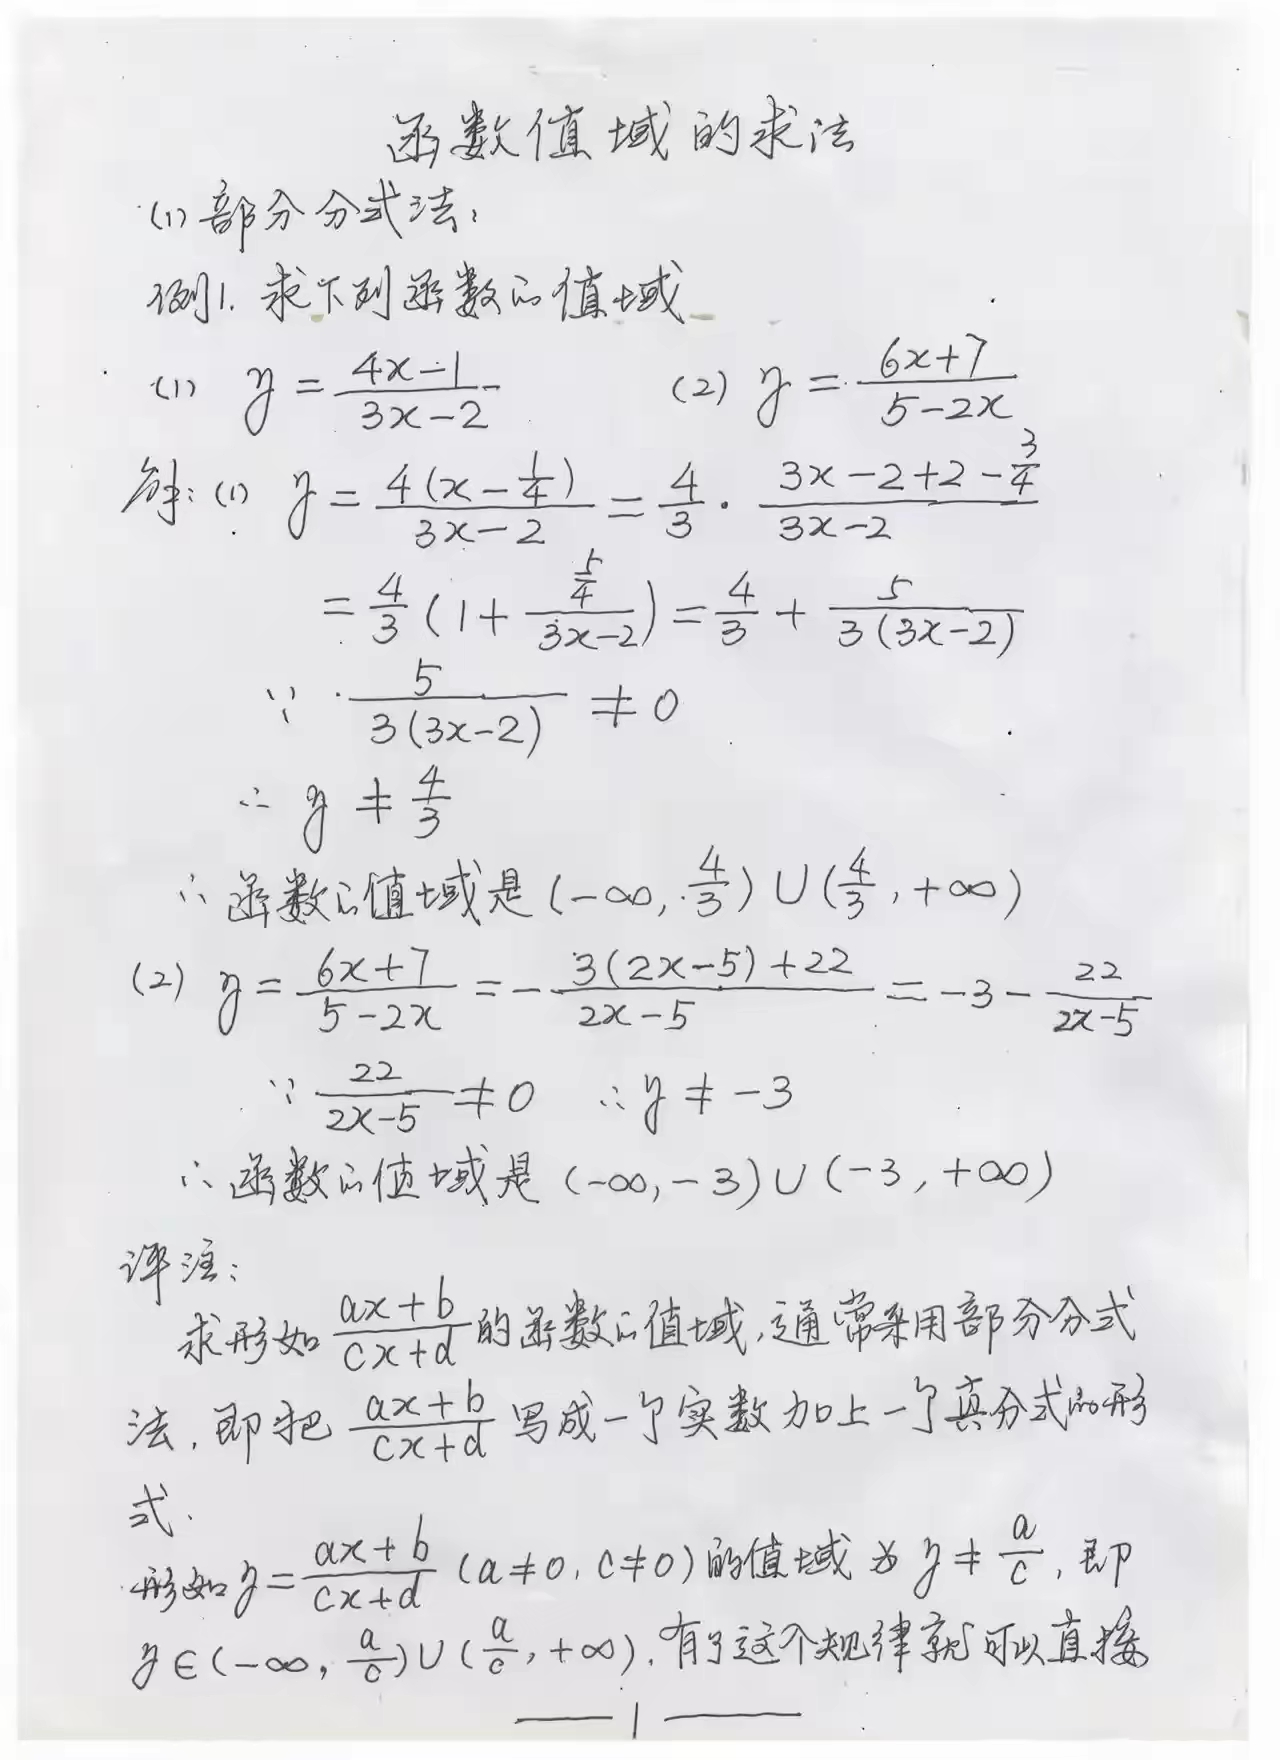 函数值域的求法
(1) 部分分式法:
例1. 求下列函数的值域
(1) y = (4x-1)/(3x-2)  (2) y = (6x+7)/(5-2x)
解: (1) y = 4(x-1/4)/(3x-2) = 4/3 · (3x-2+2-3/4)/(3x-2)
= 4/3 (1 + (5/4)/(3x-2)) = 4/3 + 5/(3(3x-2))
∵ 5/(3(3x-2)) ≠ 0
∴ y ≠ 4/3
∴ 函数的值域是 (-∞, 4/3) ∪ (4/3, +∞)
(2) y = (6x+7)/(5-2x) = -(3(2x-5)+22)/(2x-5) = -3 - 22/(2x-5)
∵ 22/(2x-5) ≠ 0 ∴ y ≠ -3
∴ 函数的值域是 (-∞, -3) ∪ (-3, +∞)
评注:
求形如 (ax+b)/(cx+d) 的函数的值域, 通常采用部分分式
法, 即把 (ax+b)/(cx+d) 写成一个实数加上一个真分式的形
式.
形如 y = (ax+b)/(cx+d) (a≠0, c≠0) 的值域为 y ≠ a/c, 即
y ∈ (-∞, a/c) ∪ (a/c, +∞). 有了这个规律就可以直接
— 1 —